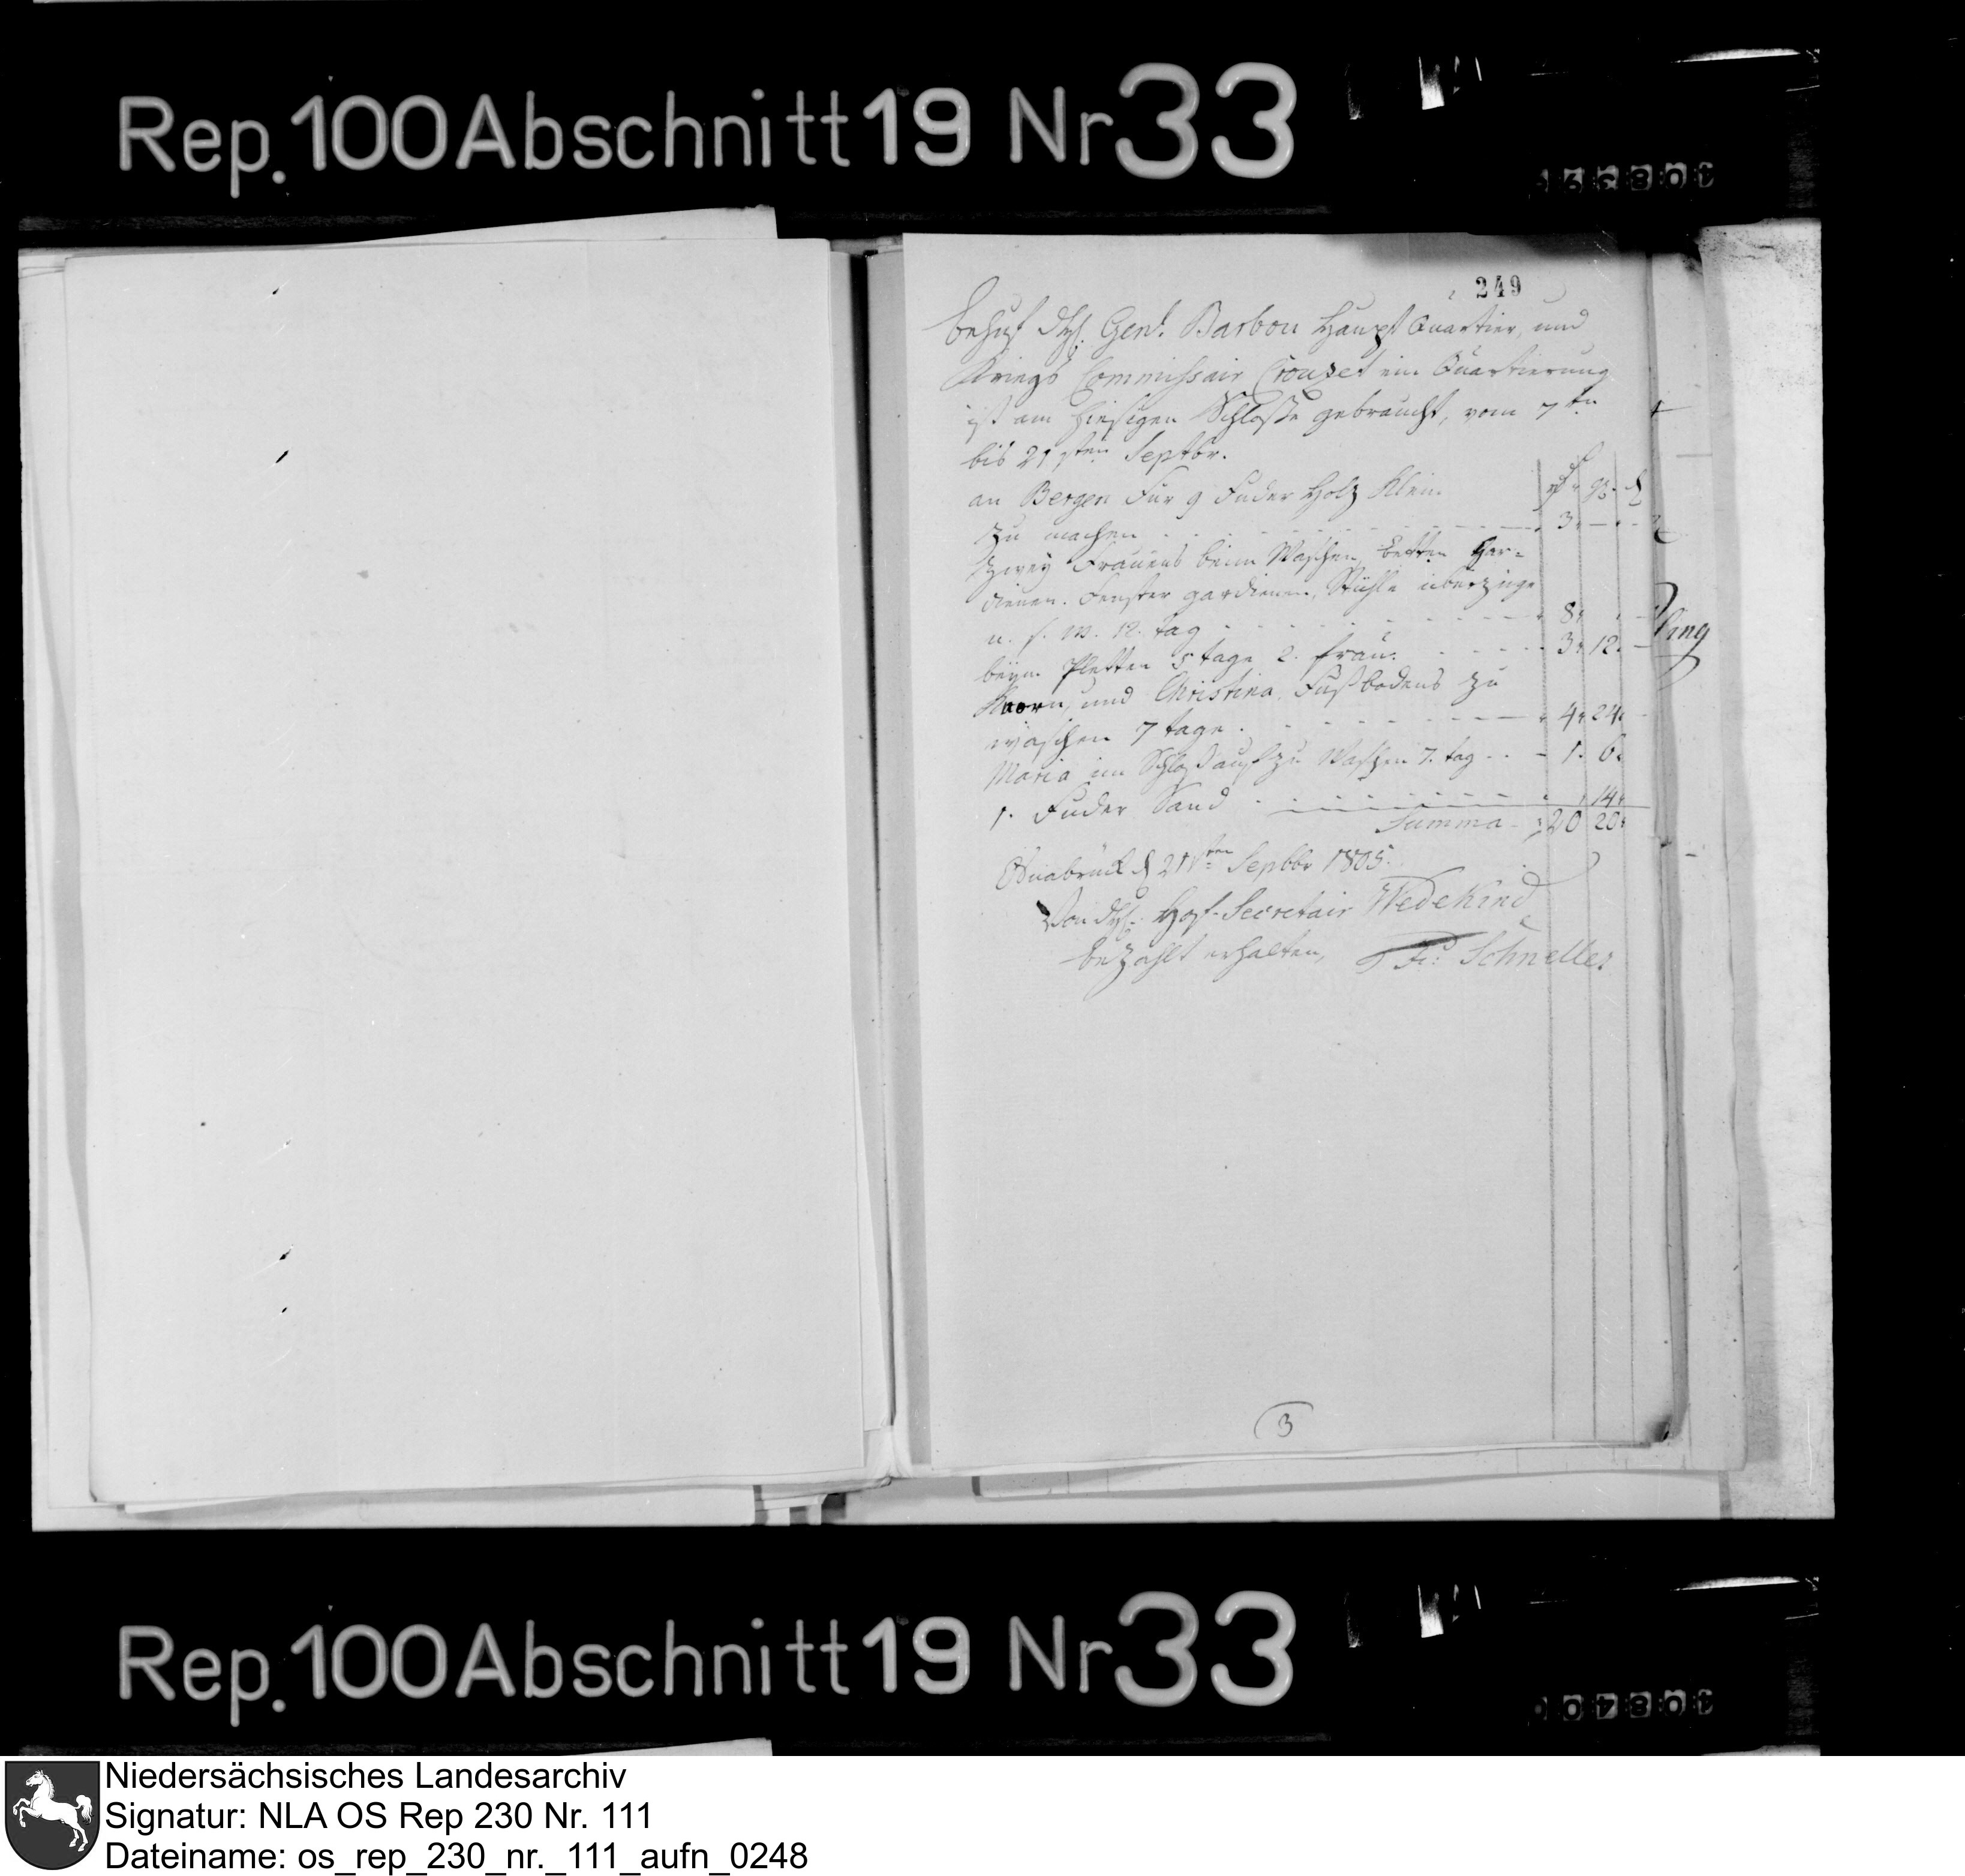 Rep. 100 Abschnitt 19 Nr 33
249
Behuf des H. Genl. Barbou Haupt Quartier, und
Kriegs Commissair Crouzet ein Quartierung
ist am hiesigen Schlosse gebraucht, vom 7ten
bis 21sten Septbr.
an Bergen Für 9 Fuder Holz Klein
zu machen 3
Zwey Frauens beim Waschen, Betten Gar=
dienen. Fenster gardienen, Stühle überzüge
u. s. w. 12. tag 8
beym Pletten 5 tage 2. frau. 3 12
und Christina Fußbodens zu
waschen 7 tage 4 24
Maria im Schloß aufzu Waschen 7. tag 1. 6
1. Fuder Sand 14
Summa 20 20
Osnabrück d 21sten Septbr 1805.
Von H. Hof-Secretair Wedekind
bezahlt erhalten, Fr: Schneller
3
Rep. 100 Abschnitt 19 Nr 33
Niedersächsisches Landesarchiv
Signatur: NLA OS Rep 230 Nr. 111
Dateiname: os_rep_230_nr._111_aufn_0248